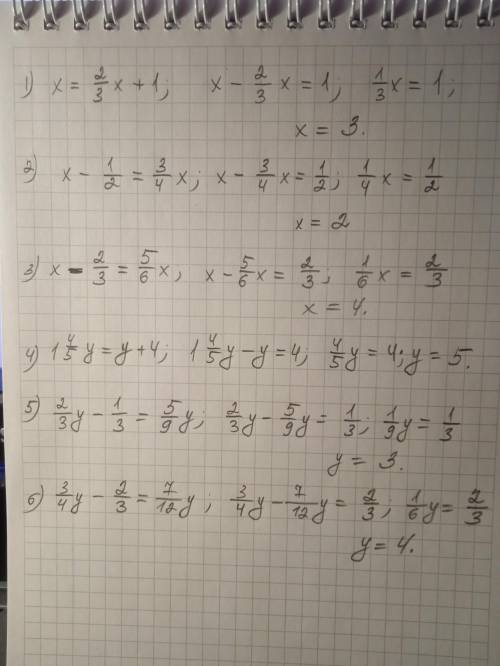 1) x = 2/3 x + 1; x - 2/3 x = 1; 1/3 x = 1;
x = 3.
2) x - 1/2 = 3/4 x; x - 3/4 x = 1/2; 1/4 x = 1/2
x = 2
3) x - 2/3 = 5/6 x; x - 5/6 x = 2/3; 1/6 x = 2/3
x = 4.
4) 1 4/5 y = y + 4; 1 4/5 y - y = 4; 4/5 y = 4; y = 5.
5) 2/3 y - 1/3 = 5/9 y; 2/3 y - 5/9 y = 1/3; 1/9 y = 1/3
y = 3.
6) 3/4 y - 2/3 = 7/12 y; 3/4 y - 7/12 y = 2/3; 1/6 y = 2/3
y = 4.